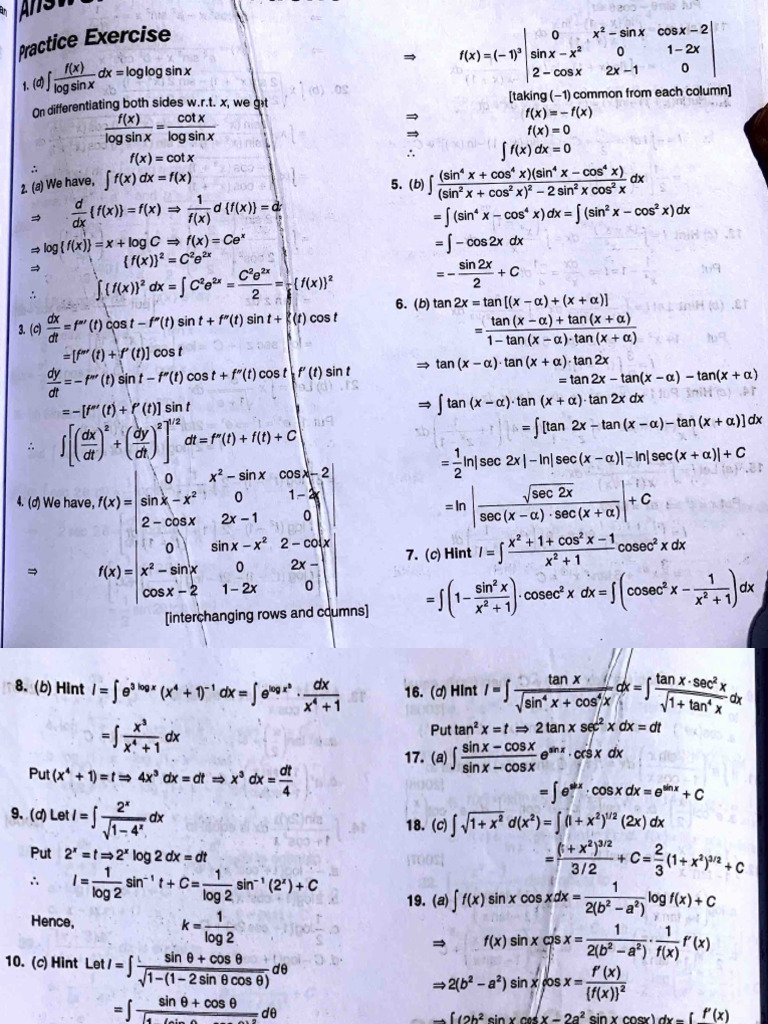 Practice Exercise
1. (d) ∫ f(x)/(log sin x) dx = log log sin x
On differentiating both sides w.r.t. x, we get
f(x)/(log sin x) = cot x/(log sin x)
∴ f(x) = cot x
2. (a) We have, ∫ f(x) dx = f(x)
⇒ d/dx {f(x)} = f(x) ⇒ 1/f(x) d{f(x)} =
⇒ log{f(x)} = x + log C ⇒ f(x) = Ce^x
⇒ {f(x)}² = C²e^(2x)
∴ ∫{f(x)}² dx = ∫ C²e^(2x) = C²e^(2x)/2 = {f(x)}²
3. (c) dx/dt = f'''(t) cos t − f''(t) sin t + f''(t) sin t + (t) cos t
= [f'''(t) + f'(t)] cos t
dy/dt = − f'''(t) sin t − f''(t) cos t + f''(t) cos t f'(t) sin t
= −[f'''(t) + f'(t)] sin t
∴ ∫[(dx/dt)² + (dy/dt)²]^(1/2) dt = f''(t) + f(t) + C
4. (d) We have, f(x) = | 0 x² − sin x cos x − 2 |
| sin x − x² 0 1 − 2x |
| 2 − cos x 2x − 1 0 |
⇒ f(x) = | 0 sin x − x² 2 − cos x |
| x² − sin x 0 2x − |
| cos x − 2 1 − 2x 0 |
[interchanging rows and columns]
⇒ f(x) = (−1)³ | 0 x² − sin x cos x − 2 |
| sin x − x² 0 1 − 2x |
| 2 − cos x 2x − 1 0 |
[taking (−1) common from each column]
⇒ f(x) = − f(x)
⇒ f(x) = 0
∴ ∫ f(x) dx = 0
5. (b) ∫ (sin⁴ x + cos⁴ x)(sin⁴ x − cos⁴ x)/((sin² x + cos² x)² − 2 sin² x cos² x) dx
= ∫ (sin⁴ x − cos⁴ x) dx = ∫ (sin² x − cos² x) dx
= ∫ − cos 2x dx
= − sin 2x/2 + C
6. (b) tan 2x = tan [(x − α) + (x + α)]
= (tan (x − α) + tan (x + α))/(1 − tan (x − α)·tan (x + α))
⇒ tan (x − α)·tan (x + α)·tan 2x
= tan 2x − tan(x − α) − tan(x + α)
⇒ ∫ tan (x − α)·tan (x + α)·tan 2x dx
= ∫ [tan 2x − tan (x − α) − tan (x + α)] dx
= 1/2 ln|sec 2x| − ln|sec (x − α)| − ln|sec (x + α)| + C
= ln |√(sec 2x)/(sec (x − α)·sec (x + α))| + C
7. (c) Hint I = ∫ (x² + 1 + cos² x − 1)/(x² + 1) cosec² x dx
= ∫ (1 − sin² x/(x² + 1))·cosec² x dx = ∫ (cosec² x − 1/(x² + 1)) dx
8. (b) Hint I = ∫ e^(3 log x) (x⁴ + 1)⁻¹ dx = ∫ e^(log x³) · dx/(x⁴ + 1)
= ∫ x³/(x⁴ + 1) dx
Put (x⁴ + 1) = t ⇒ 4x³ dx = dt ⇒ x³ dx = dt/4
9. (d) Let I = ∫ 2^x/√(1 − 4^x) dx
Put 2^x = t ⇒ 2^x log 2 dx = dt
∴ I = 1/(log 2) sin⁻¹ t + C = 1/(log 2) sin⁻¹ (2^x) + C
Hence, k = 1/(log 2)
10. (c) Hint Let I = ∫ (sin θ + cos θ)/√(1 − (1 − 2 sin θ cos θ)) dθ
= ∫ (sin θ + cos θ) dθ
16. (d) Hint I = ∫ tan x/√(sin⁴ x + cos⁴ x) dx = ∫ (tan x·sec² x)/√(1 + tan⁴ x) dx
Put tan² x = t ⇒ 2 tan x sec² x dx = dt
17. (a) ∫ (sin x − cos x)/(sin x − cos x) e^(sin x)·cos x dx
= ∫ e^(sin x)·cos x dx = e^(sin x) + C
18. (c) ∫ √(1 + x²) d(x²) = ∫ (1 + x²)^(1/2) (2x) dx
= (1 + x²)^(3/2)/(3/2) + C = 2/3 (1 + x²)^(3/2) + C
19. (a) ∫ f(x) sin x cos x dx = 1/(2(b² − a²)) log f(x) + C
⇒ f(x) sin x cos x = 1/(2(b² − a²)) · 1/f(x) f'(x)
⇒ 2(b² − a²) sin x cos x = f'(x)/{f(x)}²
⇒ ∫ (2b² sin x cos x − 2a² sin x cos x) dx = ∫ f'(x)